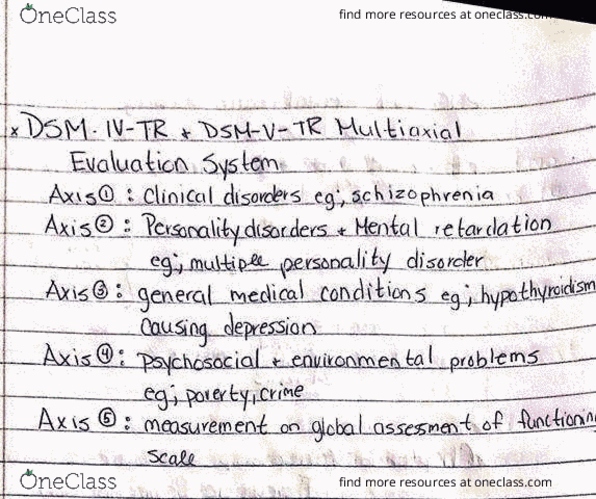 OneClass
find more resources at oneclass.com
x DSM-IV-TR + DSM-V-TR Multiaxial
Evaluation System
Axis① : Clinical disorders eg; schizophrenia
Axis② : Personality disorders + Mental retardation
eg; multiple personality disorder
Axis③ : general medical conditions eg; hypothyroidism
causing depression
Axis④ : psychosocial + environmental problems
eg; poverty, crime
Axis⑤ : measurement on global assessment of functioning
scale
OneClass
find more resources at oneclass.com